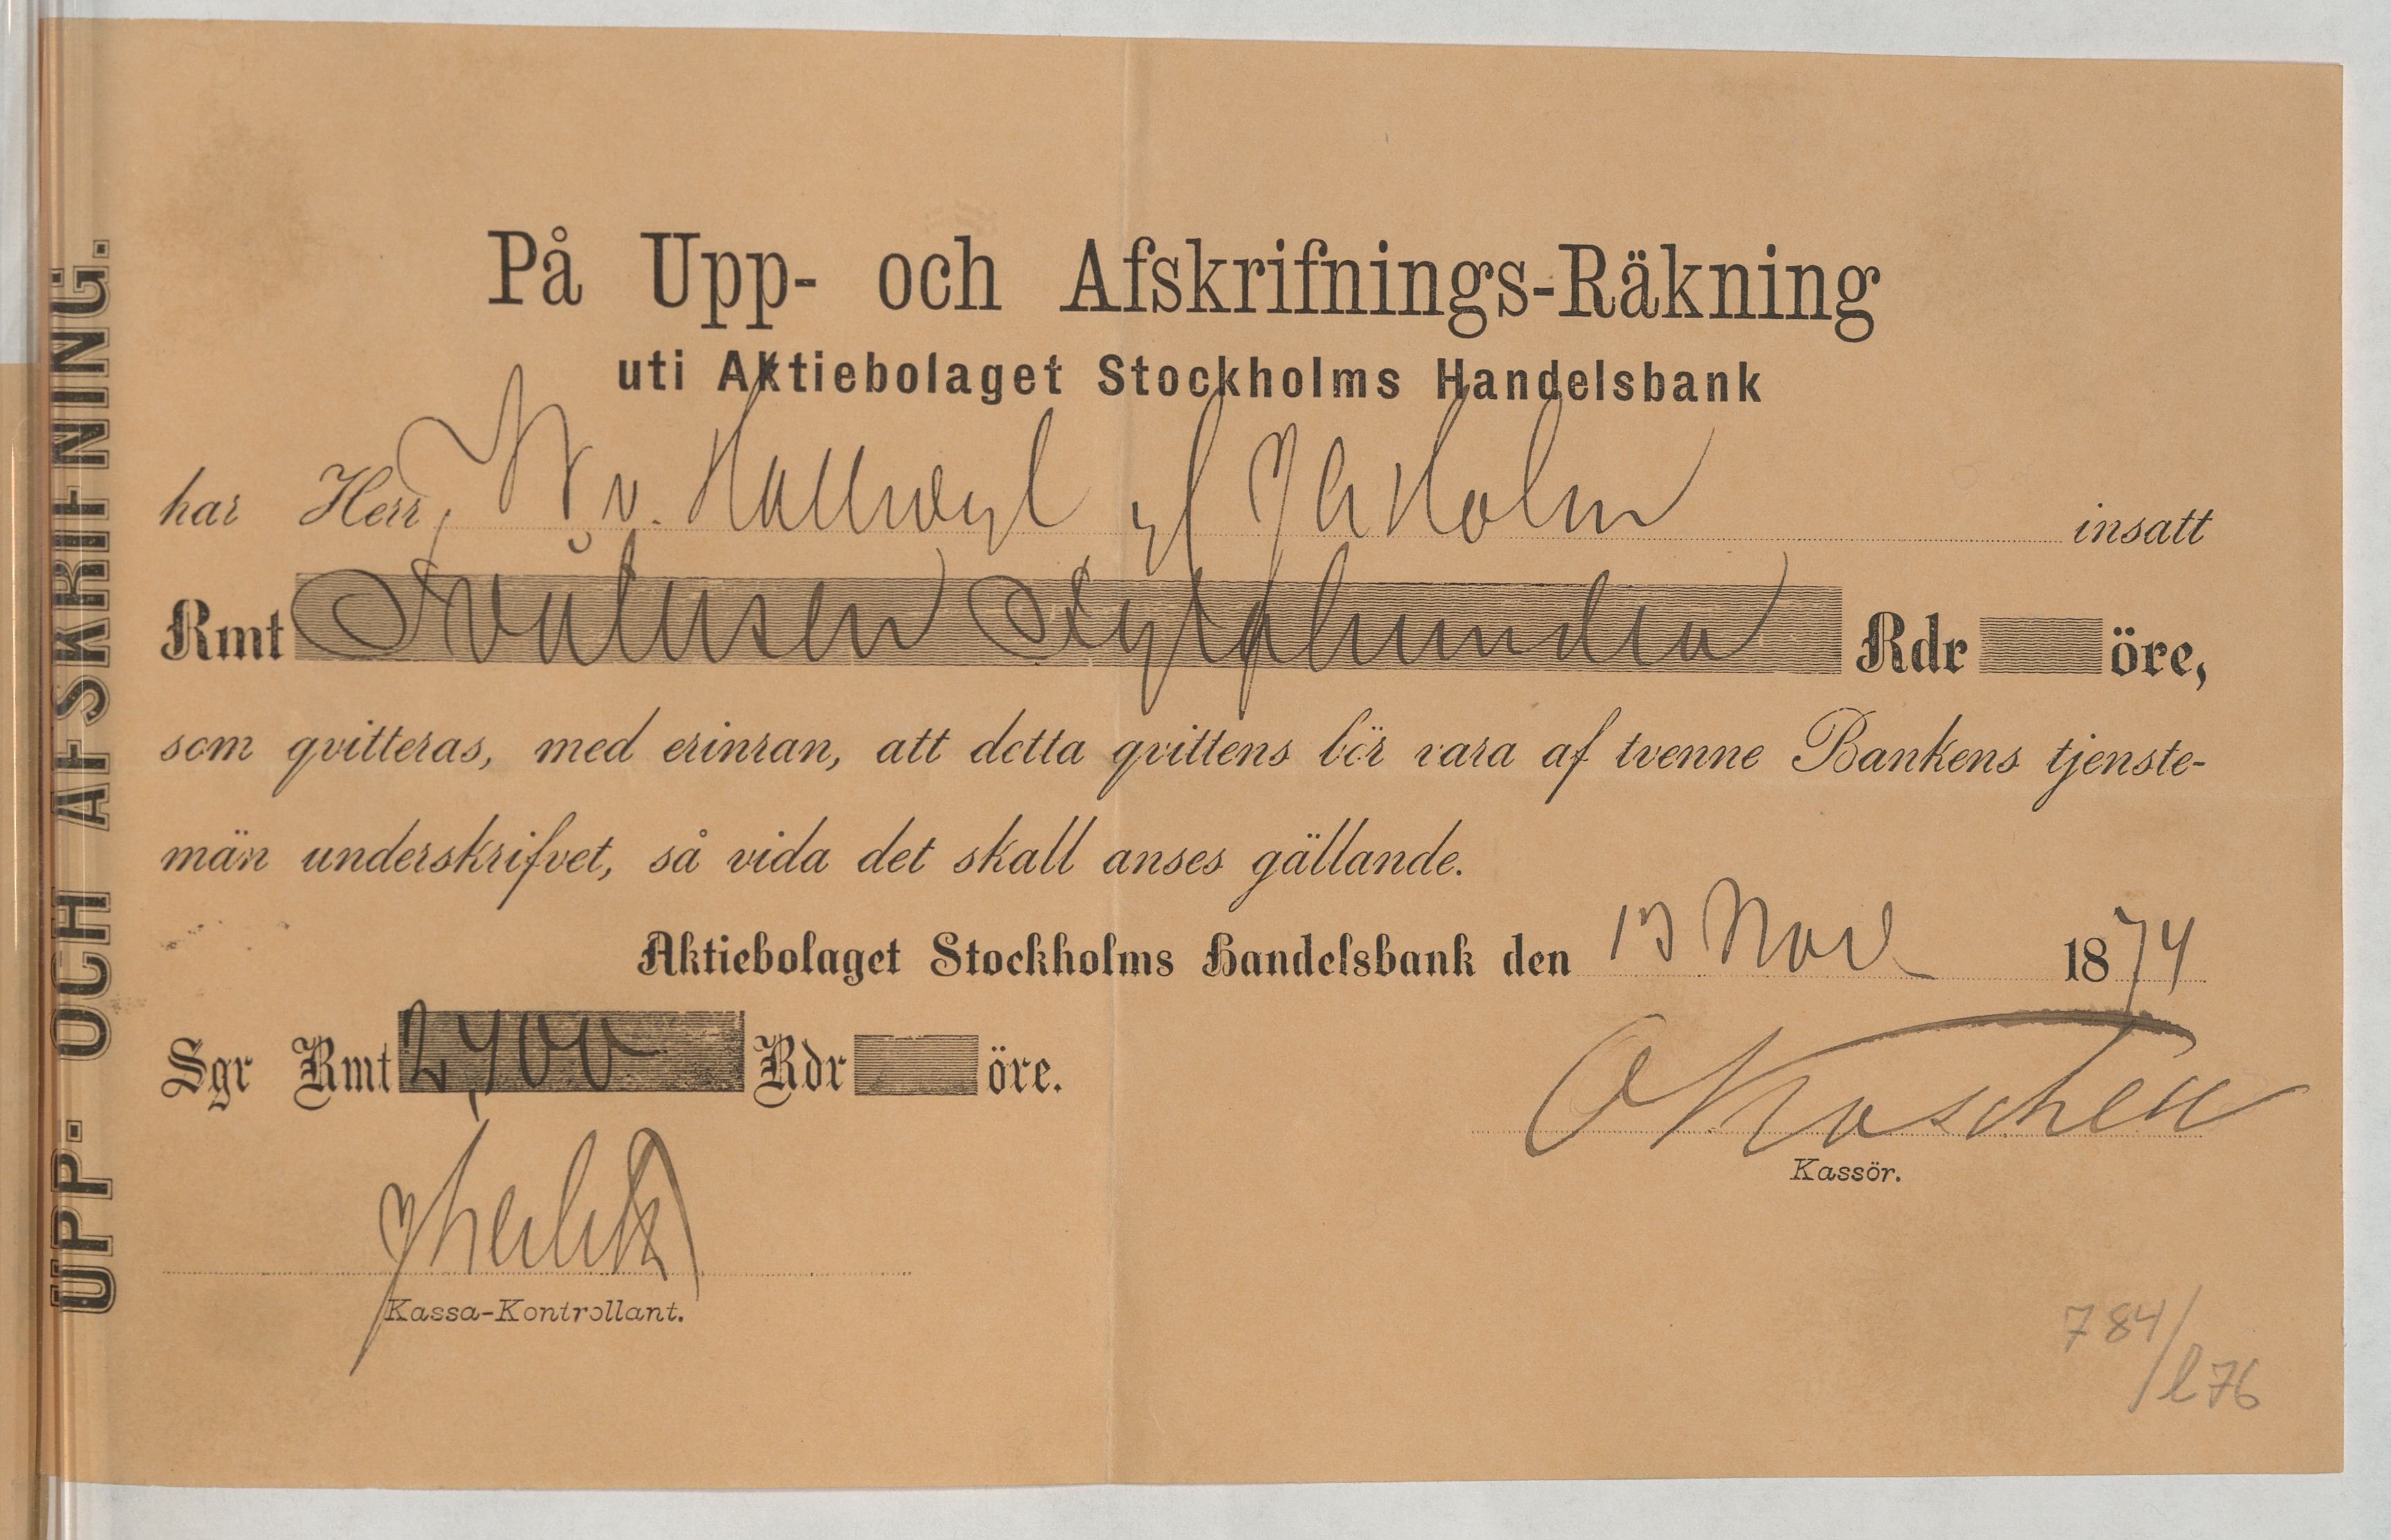 UPP- OCH AFSKRIFNING.
På Upp- och Afskrifnings-Räkning
uti Aktiebolaget Stockholms Handelsbank
har Herr W v. Hallwyl gl J A Holm insatt
Rmt Tvåtusen Fyrahundra Rdr öre,
som qvitteras, med erinran, att detta qvittens bör vara af tvenne Bankens tjenste-
män underskrifvet, så vida det skall anses gällande.
Aktiebolaget Stockholms Handelsbank den 13 Nov 1874
Sgr Rmt 2,400 Rdr öre.
Kassör.
Kassa-Kontrollant.
784/
l 76